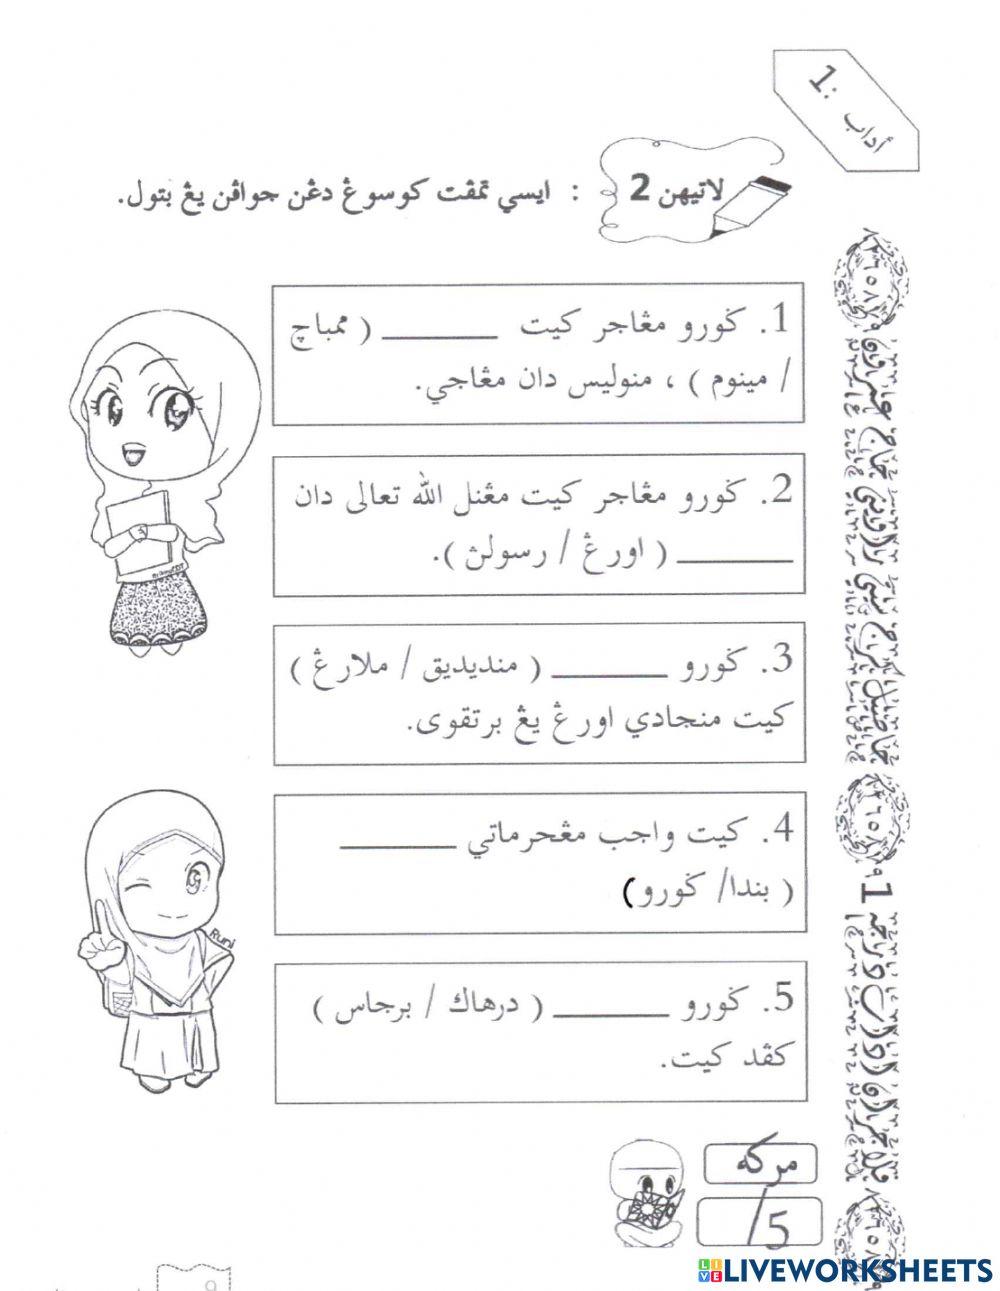 أداب 1:
لاتيهن 2 : ايسي تمڤت كوسوڠ دڠن جواڤن يڠ بتول.
1. ݢورو مڠاجر كيت ________ ( ممباچ
/ مينوم ) ، منوليس دان مڠاجي.
2. ݢورو مڠاجر كيت مڠنل الله تعالى دان
________ ( اورڠ / رسولڽ ).
3. ݢورو ________ ( منديديق / ملارڠ )
كيت منجادي اورڠ يڠ برتقوى.
4. كيت واجب مڠحرماتي ________
( بندا/ ݢورو)
5. ݢورو ________ ( درهاك / برجاس )
كڤد كيت.
Runi
مركه
/5
9
LIVEWORKSHEETS